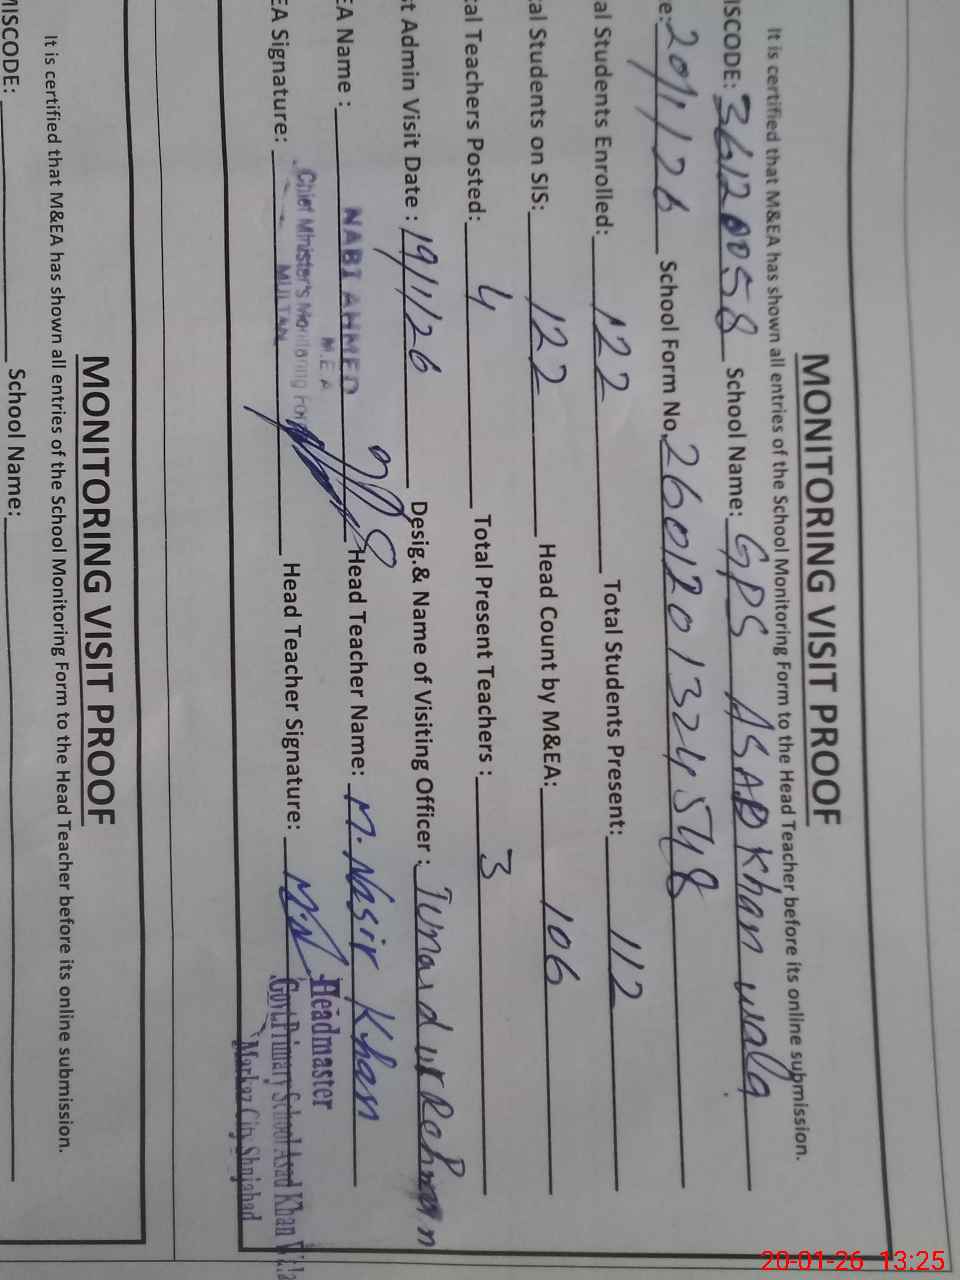 MONITORING VISIT PROOF
It is certified that M&EA has shown all entries of the School Monitoring Form to the Head Teacher before its online submission.
ISCODE: 36120058 School Name: GPS ASAD Khan wala
e: 20/1/26 School Form No. 2601201324548
al Students Enrolled: 122 Total Students Present: 112
al Students on SIS: 122 Head Count by M&EA: 106
tal Teachers Posted: 4 Total Present Teachers : 3
t Admin Visit Date : 19/1/26 Desig.& Name of Visiting Officer : ur Rehman
EA Name : NABI AHMED Head Teacher Name: M. Nasir Khan
M.E.A
Chief Minister's Monitoring For
MULTAN
EA Signature: Head Teacher Signature:
Headmaster
Govt.Primary School Asad Khan Wala
Markaz City Shujabad
MONITORING VISIT PROOF
It is certified that M&EA has shown all entries of the School Monitoring Form to the Head Teacher before its online submission.
MISCODE: School Name:
20-01-26 13:25